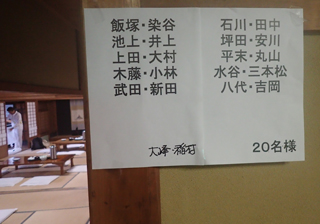 飯塚・染谷
池上・井上
上田・大村
木藤・小林
武田・新田
石川・田中
坪田・安川
平末・丸山
水谷・三本松
八代・吉岡
大峰・稲石
20名様